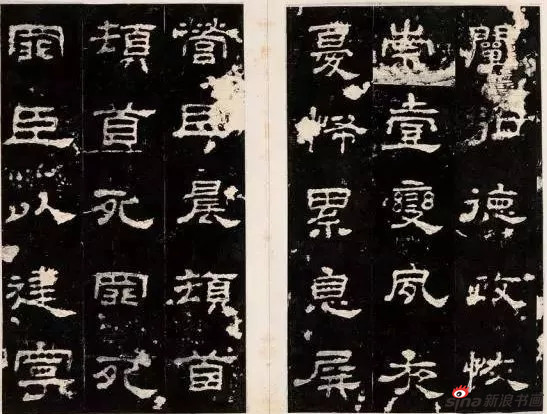 闡弘德政恢
崇壹變夙夜
憂怖累息屏
營臣晨頓首
頓首死罪死
罪臣以建寧
sina新浪书画